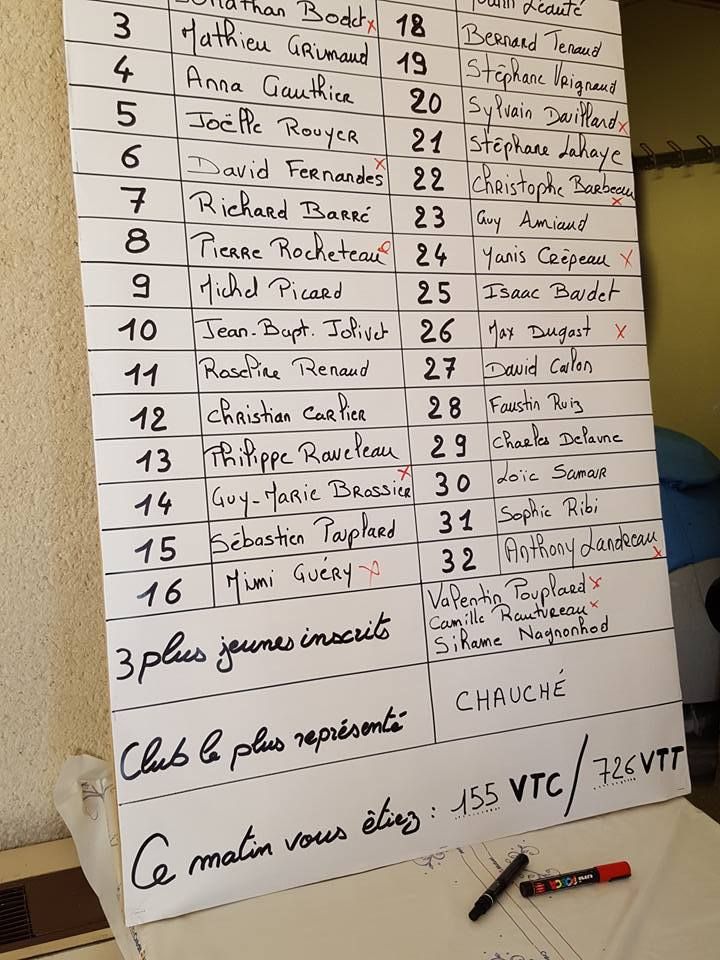 Jonathan Bodet x 18 Yoann Léauté
3 Mathieu Grimaud 18 Bernard Tenaud
4 Anna Gauthier 19 Stéphane Vrignaud
5 Joëlle Rouyer 20 Sylvain Davillard x
6 David Fernandes x 21 Stéphane Lahaye
7 Richard Barré 22 Christophe Barbeau x
8 Pierre Rocheteau 23 Guy Amiaud
9 Michel Picard 24 Yanis Crêpeau x
10 Jean-Bapt. Jolivet 25 Isaac Baudet
11 Roseline Renaud 26 Max Dugast x
12 Christian Carlier 27 David Carlon
13 Philippe Raveleau 28 Faustin Ruiz
14 Guy-Marie Brossier x 29 Charles Delavne
15 Sébastien Pouplard 30 Loïc Samour
16 Mimi Guéry x 31 Sophie Ribi
32 Anthony Landreau x
3 plus jeunes inscrits
Valentin Pouplard x
Camille Rautureau x
Sihame Nagnonhod
Club le plus représenté CHAUCHÉ
Ce matin vous êtiez : 155 VTC / 726 VTT
uni POSCA